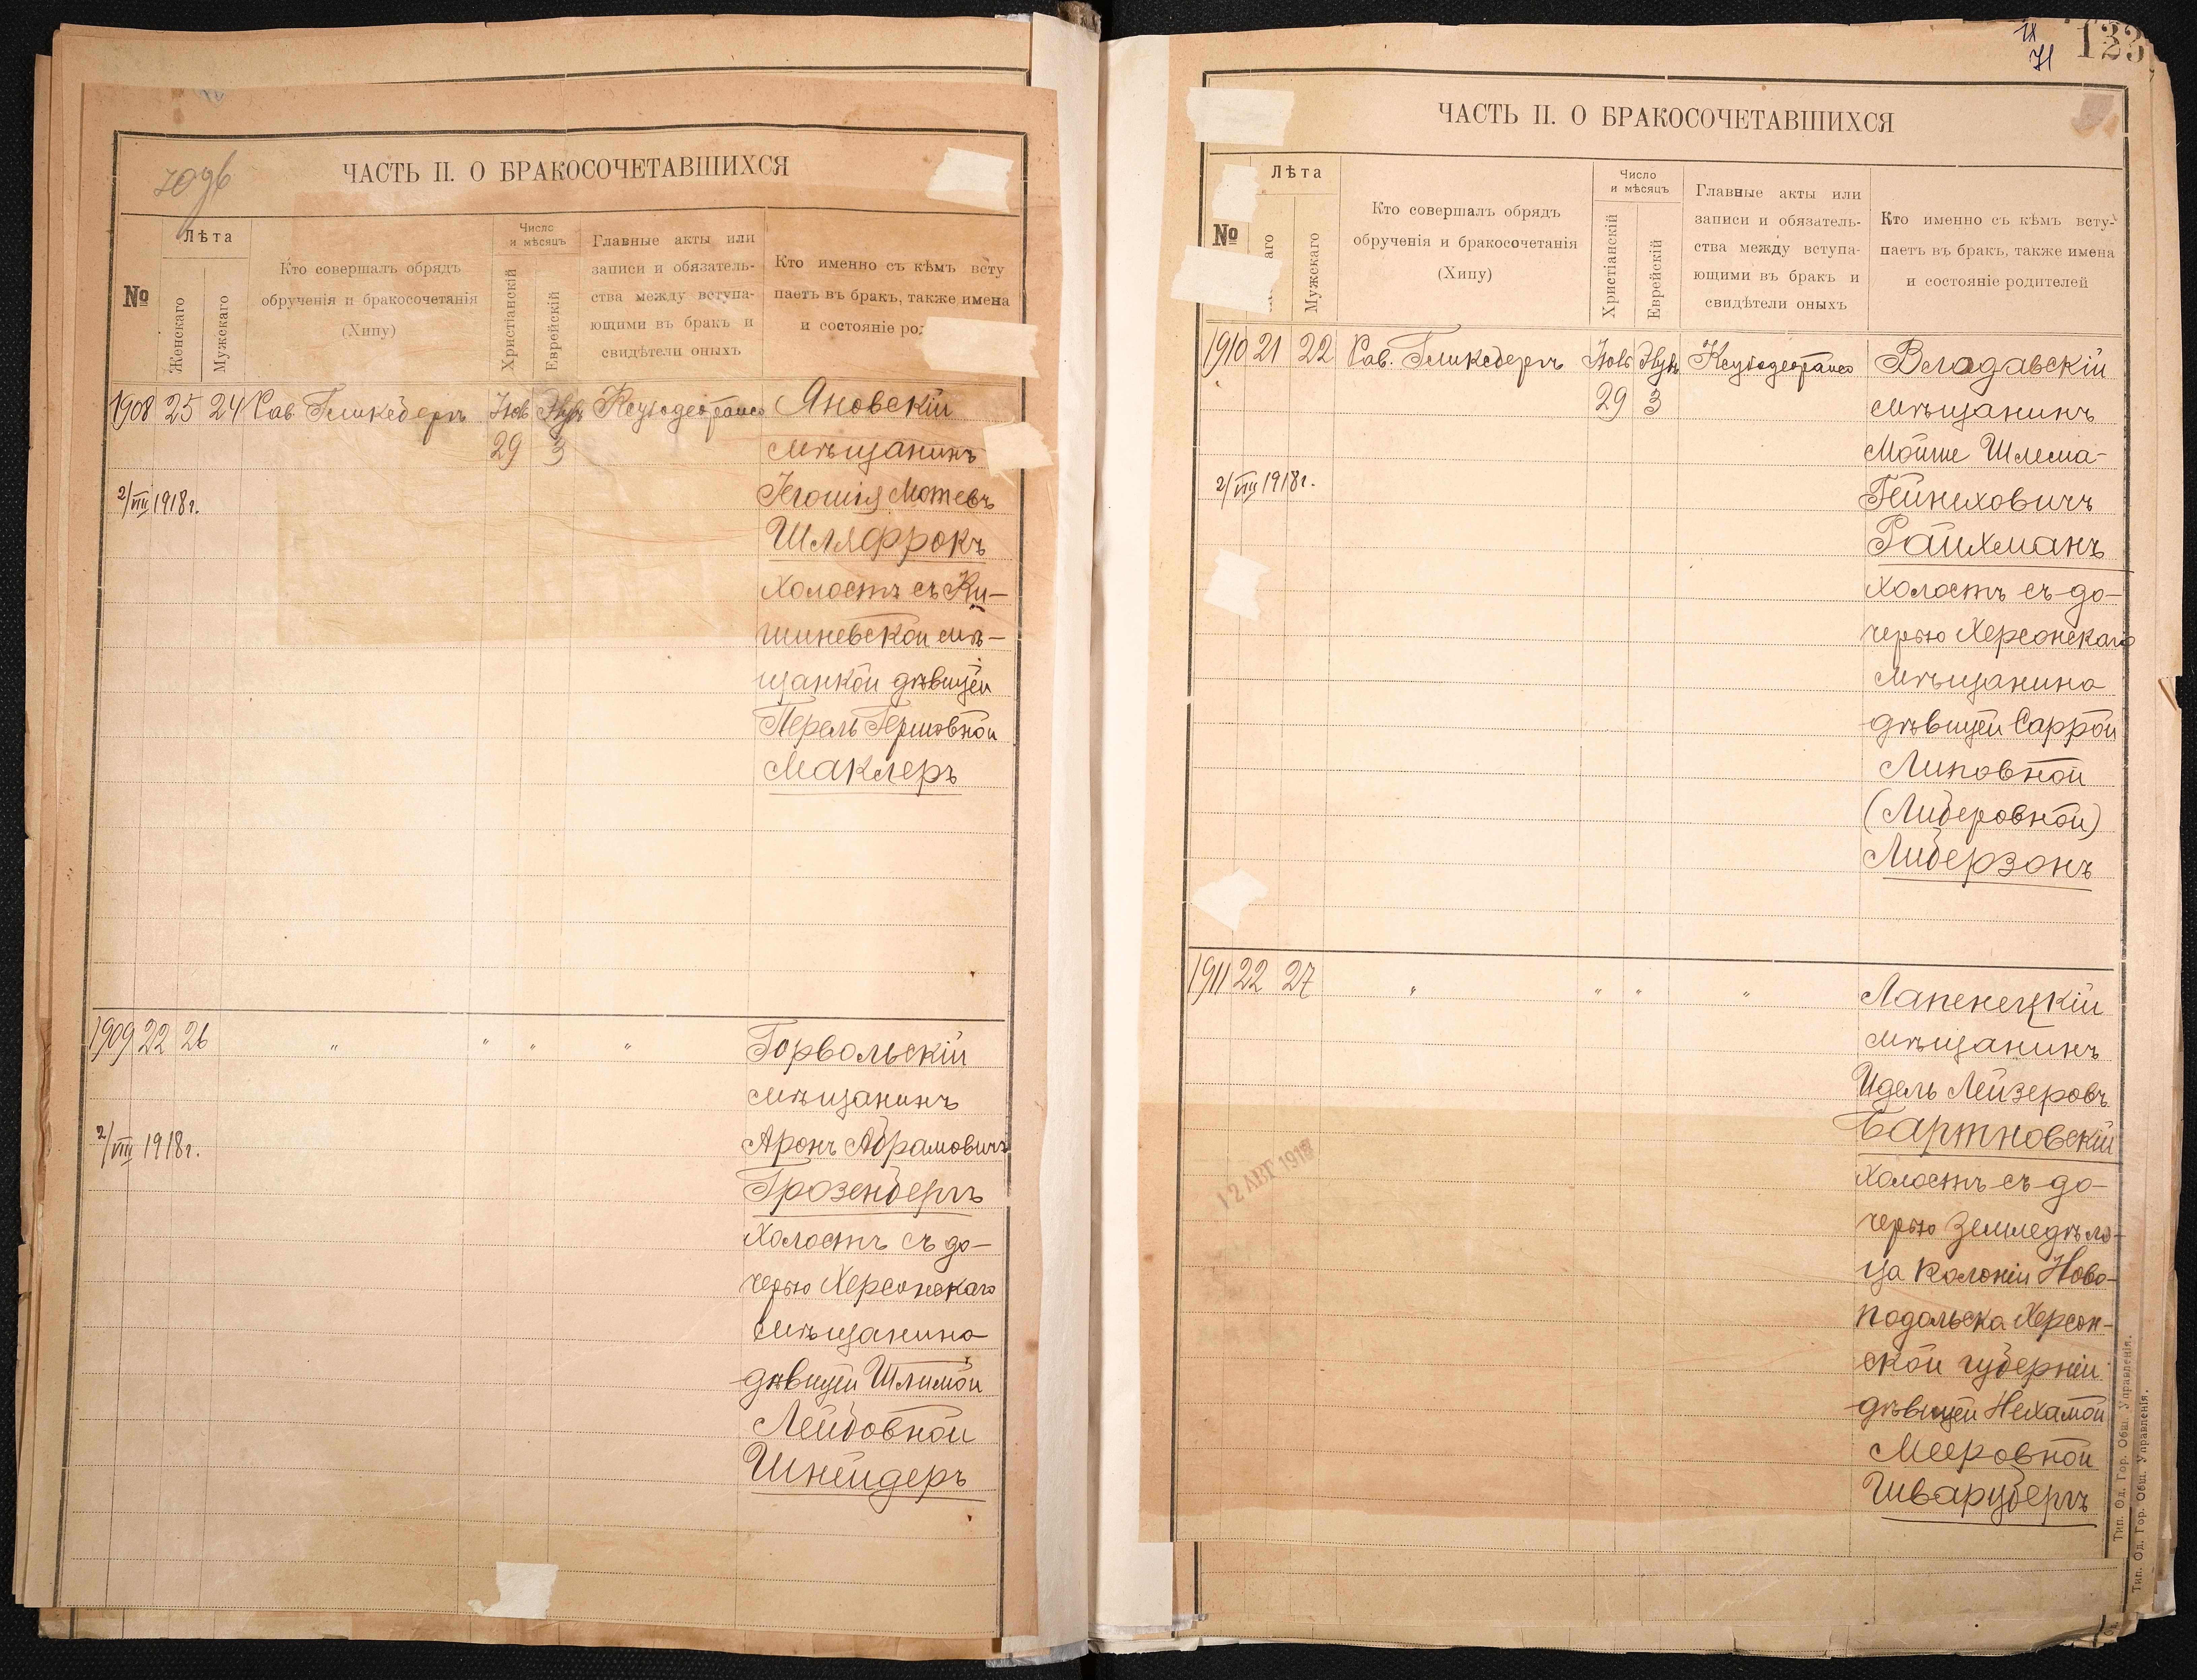 ЧАСТЬ II. О БРАКОСОЧЕТАВШИХСЯ
№
Лѣта
Женскаго
Мужскаго
Кто совершалъ обрядъ
обрученія и бракосочетанія
(Хипу)
Число
и мѣсяцъ
Христіанскій
Еврейскій
Главные акты или
записи и обязатель-
ства между вступа-
ющими въ бракъ и
свидѣтели оныхъ
Кто именно съ кѣмъ всту
паетъ въ бракъ, также имена
и состояніе
1908 25 24 Рав. Гликсбергъ
29 3
Яновскій
мѣщанинъ
2/VIII 1918г.
Мотевъ
Шляфрокъ
холостъ съ Ки-
шиневской мѣ-
щанкой дѣвицей
Перель Гершовной
Маклеръ
1909 22 26 " " " "
Горвольскій
мѣщанинъ
2/VIII 1918г.
Аронъ Абрамовичъ
Грозенбергъ
холостъ съ до-
черью Херсонскаго
мѣщанина
дѣвицей Шлимой
Лейбовной
Шнейдеръ
IX
71
123
ЧАСТЬ II. О БРАКОСОЧЕТАВШИХСЯ
№
Лѣта
аго
Мужскаго
Кто совершалъ обрядъ
обрученія и бракосочетанія
(Хипу)
Число
и мѣсяцъ
Христіанскій
Еврейскій
Главные акты или
записи и обязатель-
ства между вступа-
ющими въ бракъ и
свидѣтели оныхъ
Кто именно съ кѣмъ всту-
паетъ въ бракъ, также имена
и состояніе родителей
1910 21 22 Рав. Гликсбергъ
29 3
Влодавскій
мѣщанинъ
Мойше Шлема-
2/VIII 1918г.
Гейнеховичъ
Райхманъ
холостъ съ до-
черью Херсонскаго
мѣщанина
дѣвицей Саррой
Липовной
(Либеровной)
Либерзонъ
1911 22 27 " " " "
Лапенецкій
мѣщанинъ
Идель Лейзеровъ
Бартновскій
12 АВГ 1918
холостъ съ до-
черью земледѣль-
ца колоніи Ново-
подольска Херсон-
ской губерніи
дѣвицей Нехамой
Мееровной
Шварцбергъ
Тип. Од. Гор. Общ. Управленія.
Тип. Од. Гор. Общ. Управленія.